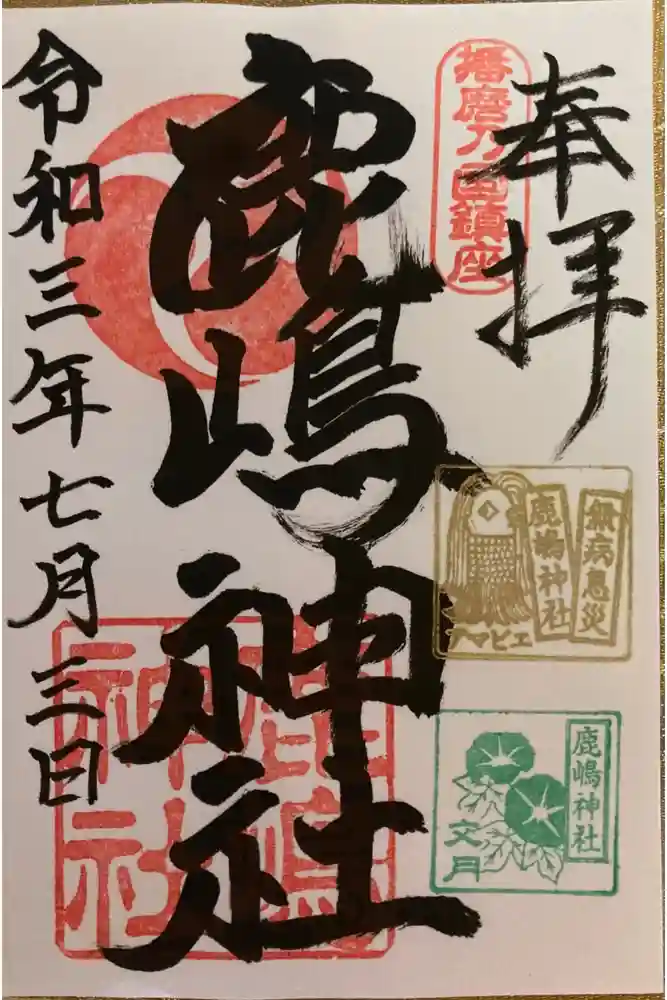 奉拝
播磨乃国鎮座
鹿嶋神社
令和三年七月三日
無病息災
鹿嶋神社
アマビエ
鹿嶋神社
文月
鹿嶋神社